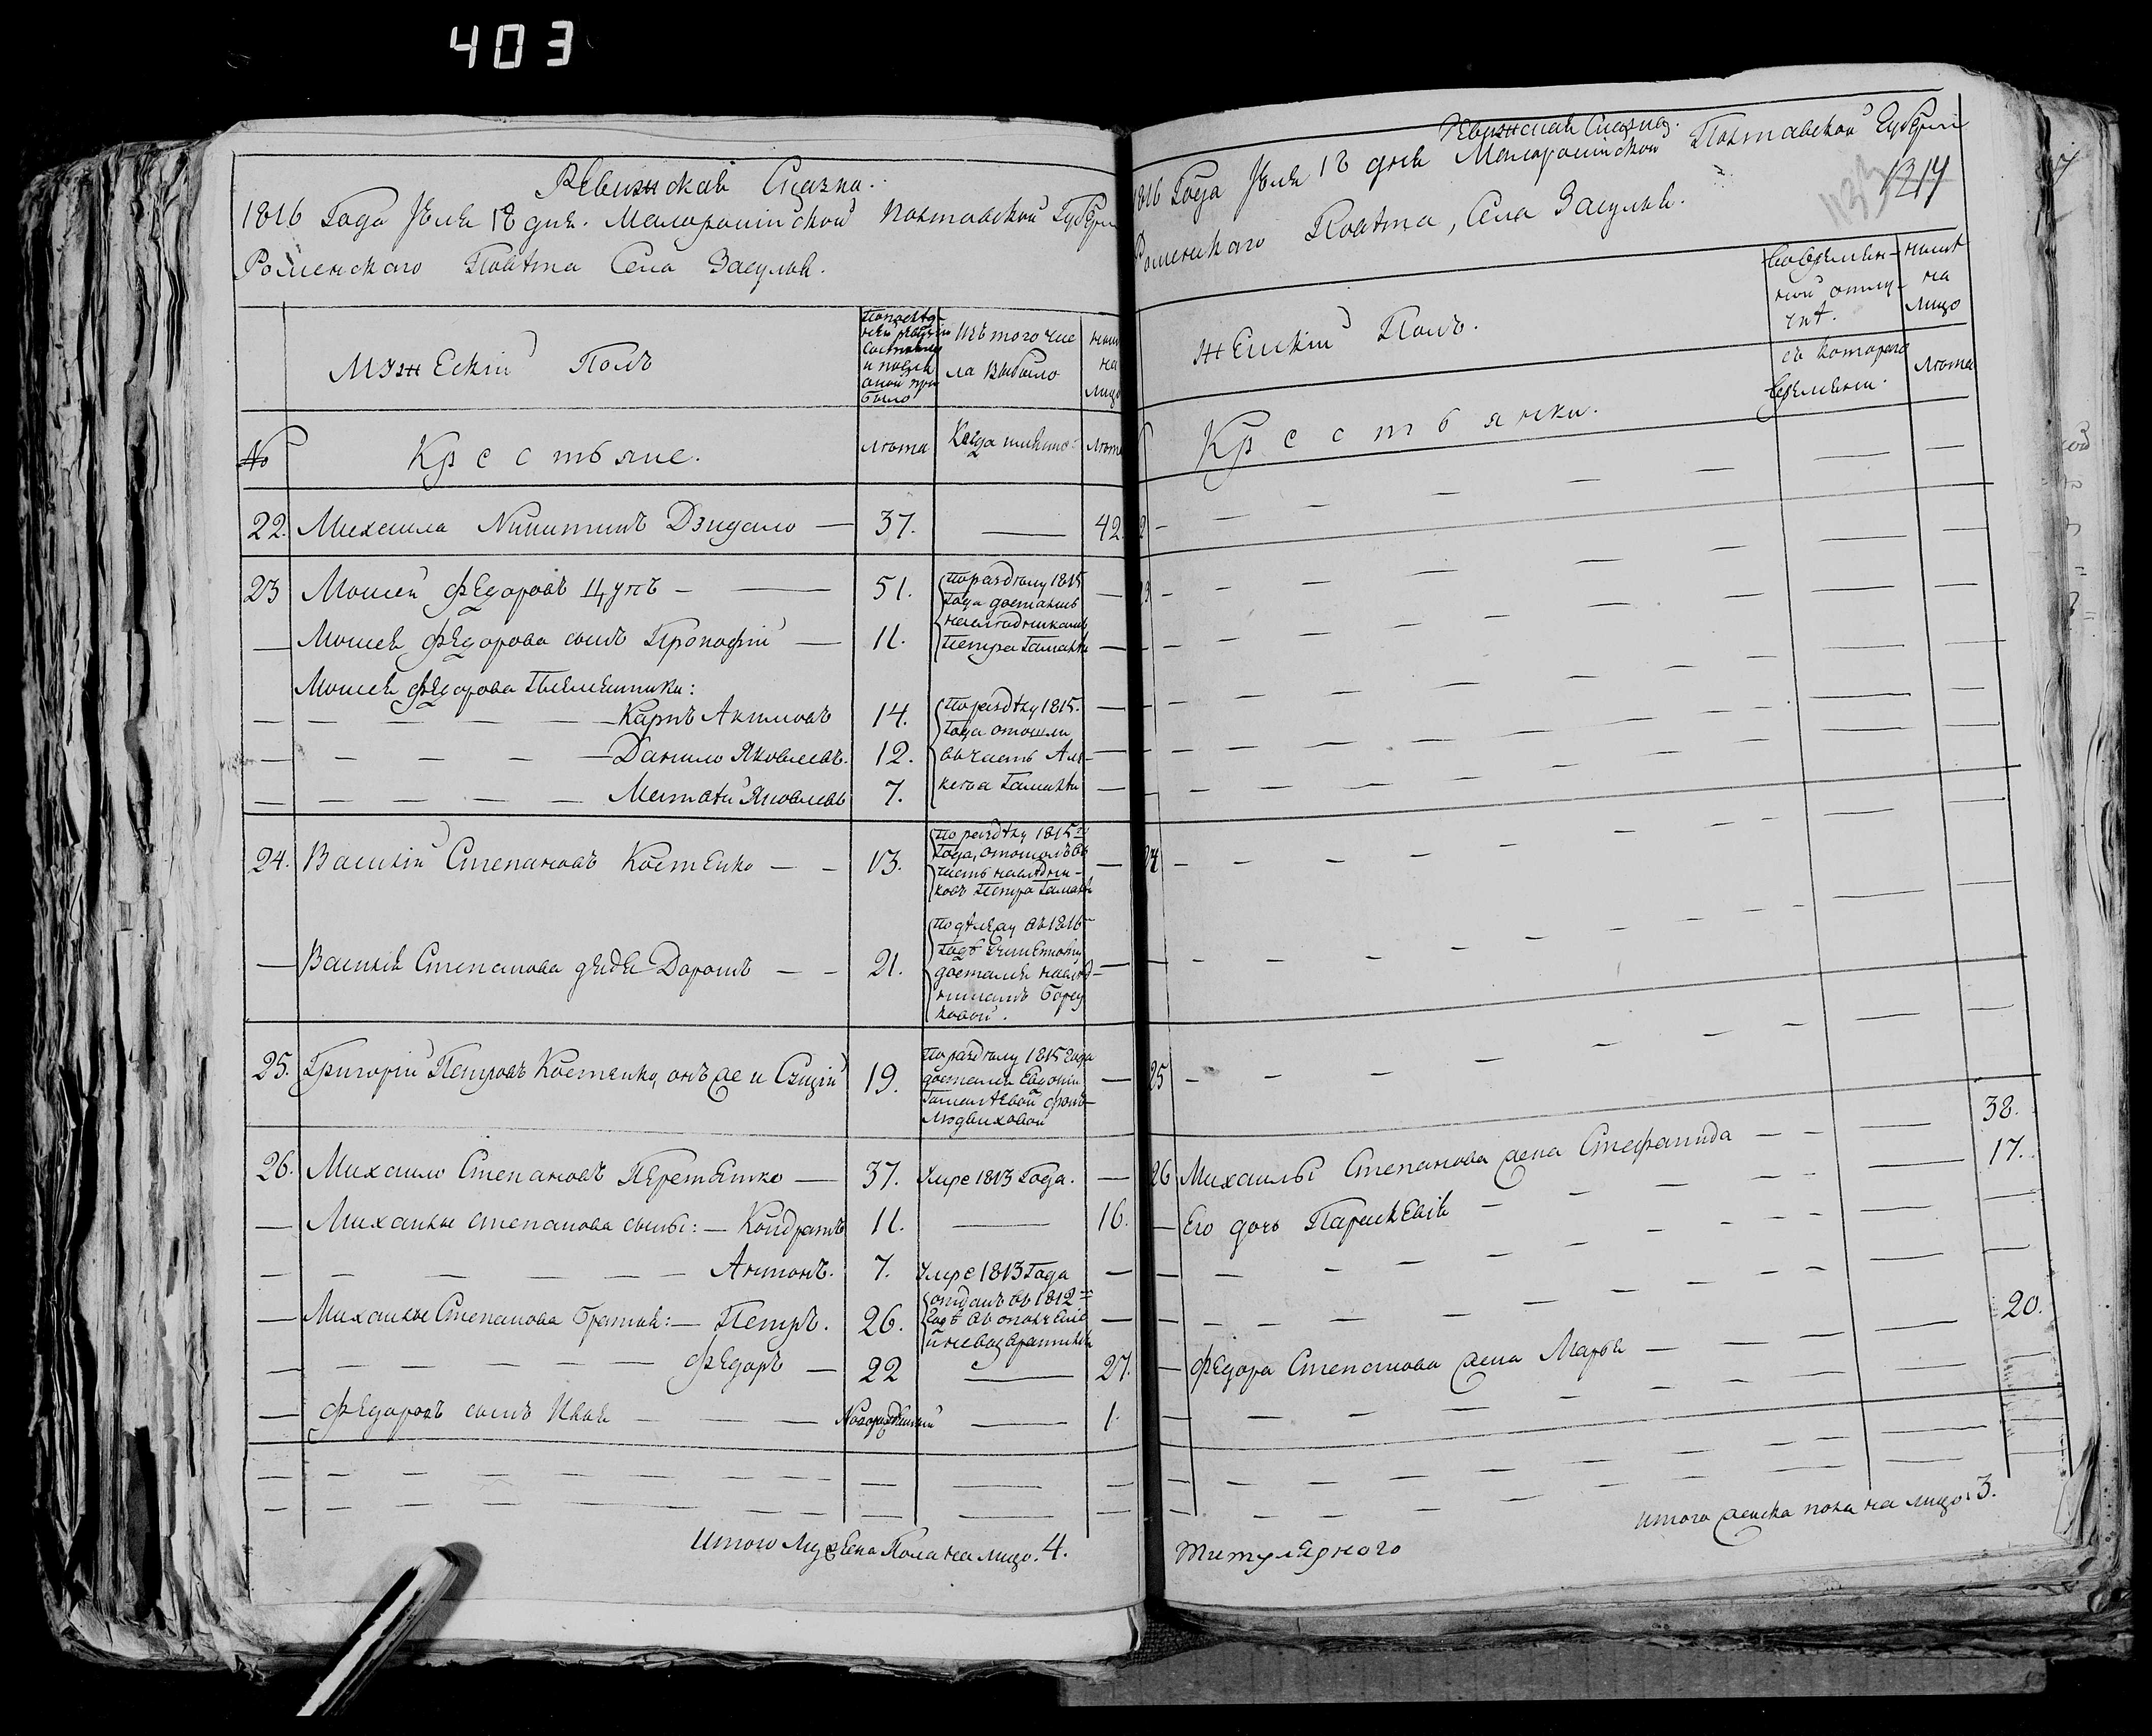 403
Ревизская Сказка.
1816 Года Июля 18 дня. Малороссийской Полтавской Губерн
Роменского Повѣта Села Засулья.
Мужескiй Полъ
По последней ревизiи состояло и после оной прибыло
Изъ того числа выбыло
ныне на лицо
№
Крестьяне.
Лѣта
Когда именно
Лѣта
22. Михаила Никитинъ Дзидало — 37. — 42.
23 Мосей Федоровъ Цупъ — 51.
по разделу 1815
Года достались
наследникамъ
Петра Гамалѣи
— Мосея Федорова сынъ Прокофiй — 11. —
Мосея Федорова Племенники:
— Карпъ Акимовъ 14. —
по раздѣлу 1815.
Года отошли
въ часть Але-
ксѣя Гамалѣи
— Данило Яковлевъ. 12. —
— Матвѣй Яковлевъ 7. —
24. Василiй Степановъ Костенко — 13. —
по раздѣлу 1815го
Года, отошолъ въ
часть наслѣдни-
ковъ Петра Гамалѣи
— Василiя Степанова дядя Дорошъ — 21. —
Года
достался наслѣд-
никамъ
25. Григорiй Петровъ Костенко, онъ же и Сизiй 19. —
по разделу 1815 Года
достался Евдокiи
Гамалѣевой фонъ
Людвиховой
26. Михаило Степановъ Перетятко — 37. Умре 1813 Года. —
— Михайлы Степанова сыны: — Кондратъ 11. — 16.
— Антонъ. 7. Умре 1813 Года —
— Михайлы Степанова братья: — Петръ. 26. —
отданъ въ 1812м
Годѣ въ ополченiе
и не возвратился
— Федоръ — 22 — 27.
— Федоровъ сынъ Иванъ — Новорожденный — 1.
Итого Мужеска Пола на лицо. 4.
Ревизская Сказка.
1816 Года Июля 18 дня Малороссийской Полтавской Губернiи
Роменского Повѣта, Села Засулья.
1134
1314
Женскiй Полъ.
Во времен-
ной отлу-
чкѣ.
съ котораго
времени.
ныне
на
лицо
Лѣта
Крестьянки.
2
23
24
25
26 Михайлы Степанова жена Стефанида — 38.
— Его дочь Параскевiя — 17.
— Федора Степанова жена Марья — 20.
Итого женска пола на лицо. 3.
Титулярного